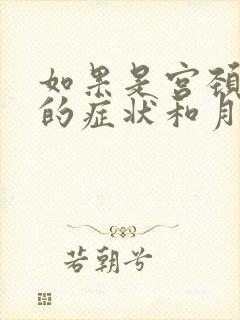 如果是宫颈
的症状和月
若朝兮